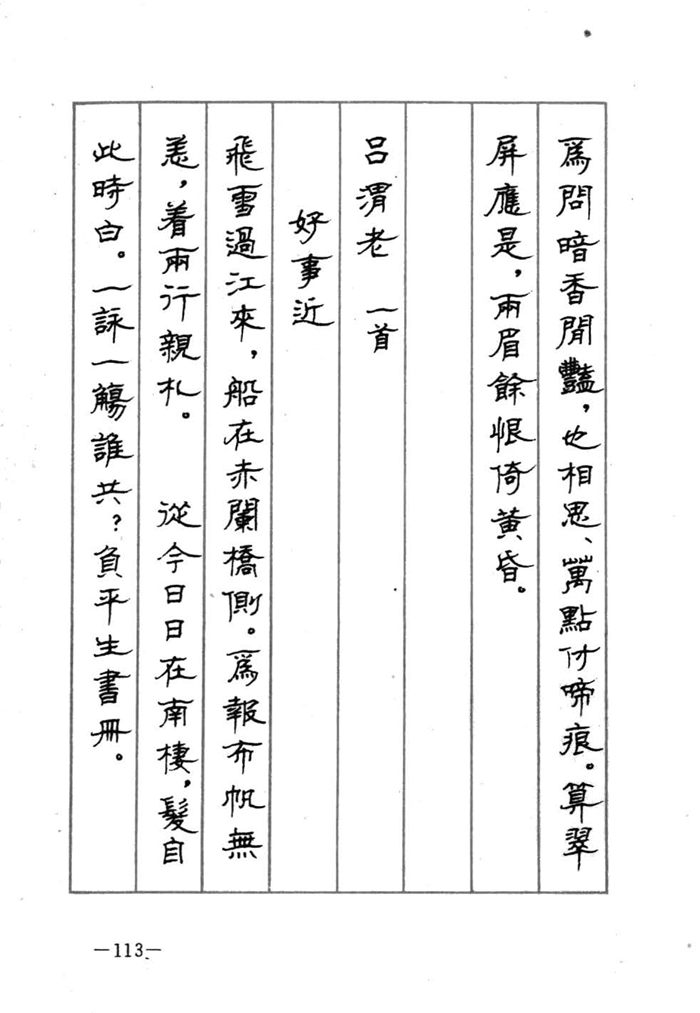 爲問暗香閒豔，也相思、萬點付啼痕。算翠
屏應是，兩眉餘恨倚黃昏。
呂渭老　一首
好事近
飛雪過江來，船在赤闌橋側。爲報布帆無
恙，着兩行親札。　從今日日在南棲，髮自
此時白。一詠一觴誰共？負平生書冊。
—113—